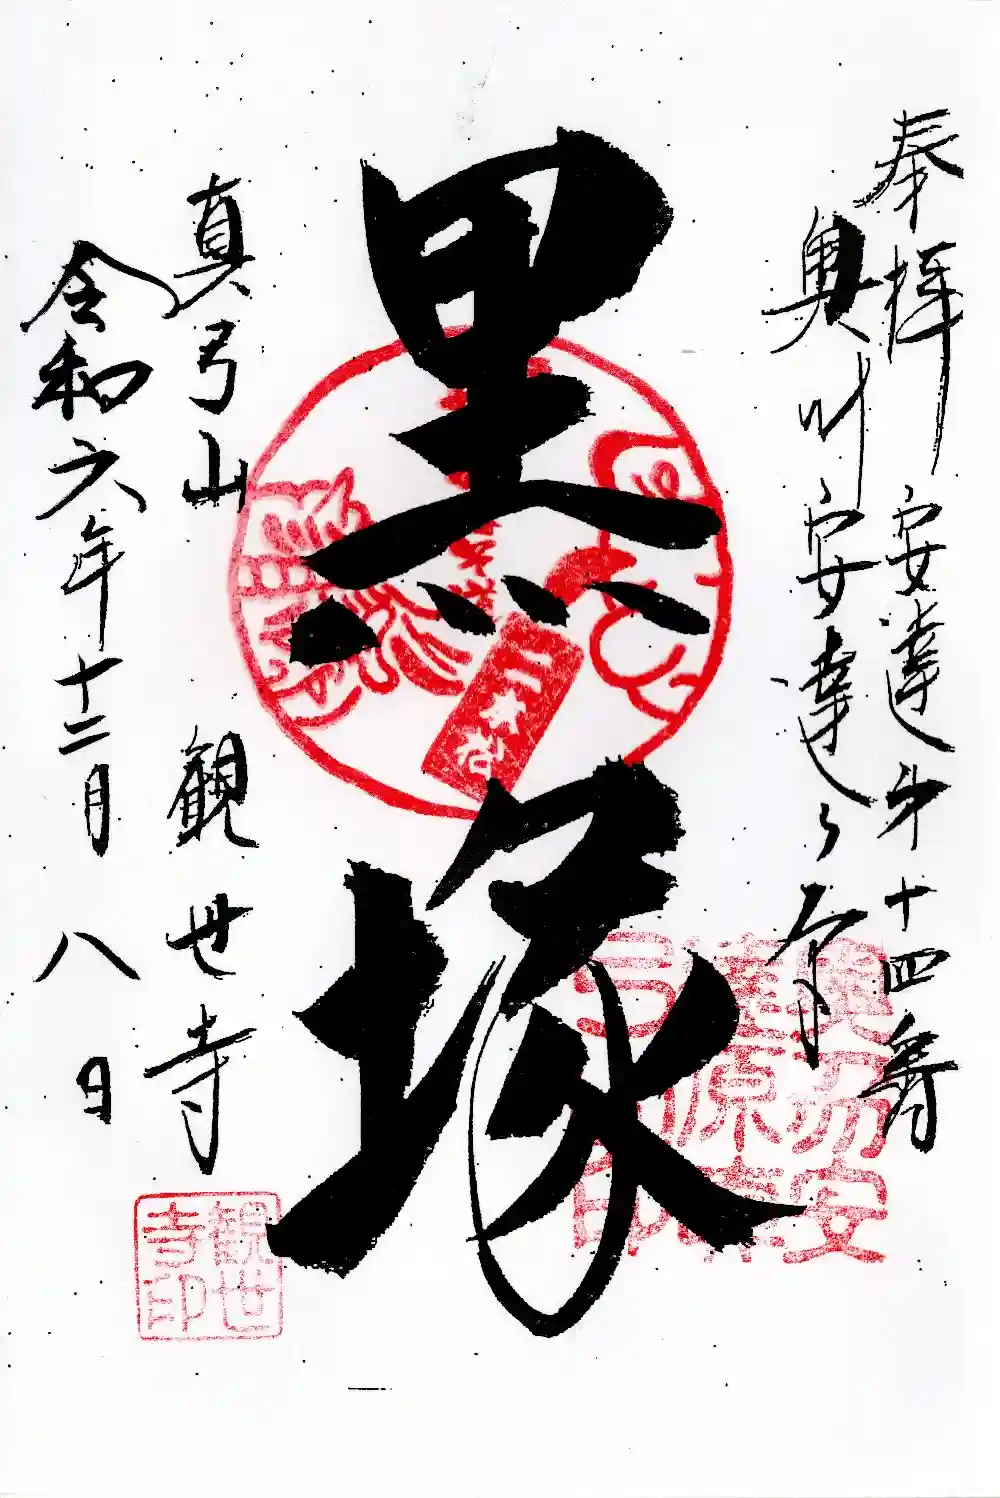 奉拝 安達第十四番
奥州安達ヶ原
黒塚
真弓山 観世寺
令和六年十二月八日
二本松
観世
寺印